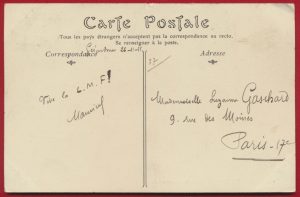 Carte Postale
Tous les pays étrangers n'acceptent pas la correspondance au recto.
Se renseigner à la poste.
Correspondance
Adresse
Vive le
Mademoiselle Suzanne Gaschard
9. rue des Moines
Paris-17e